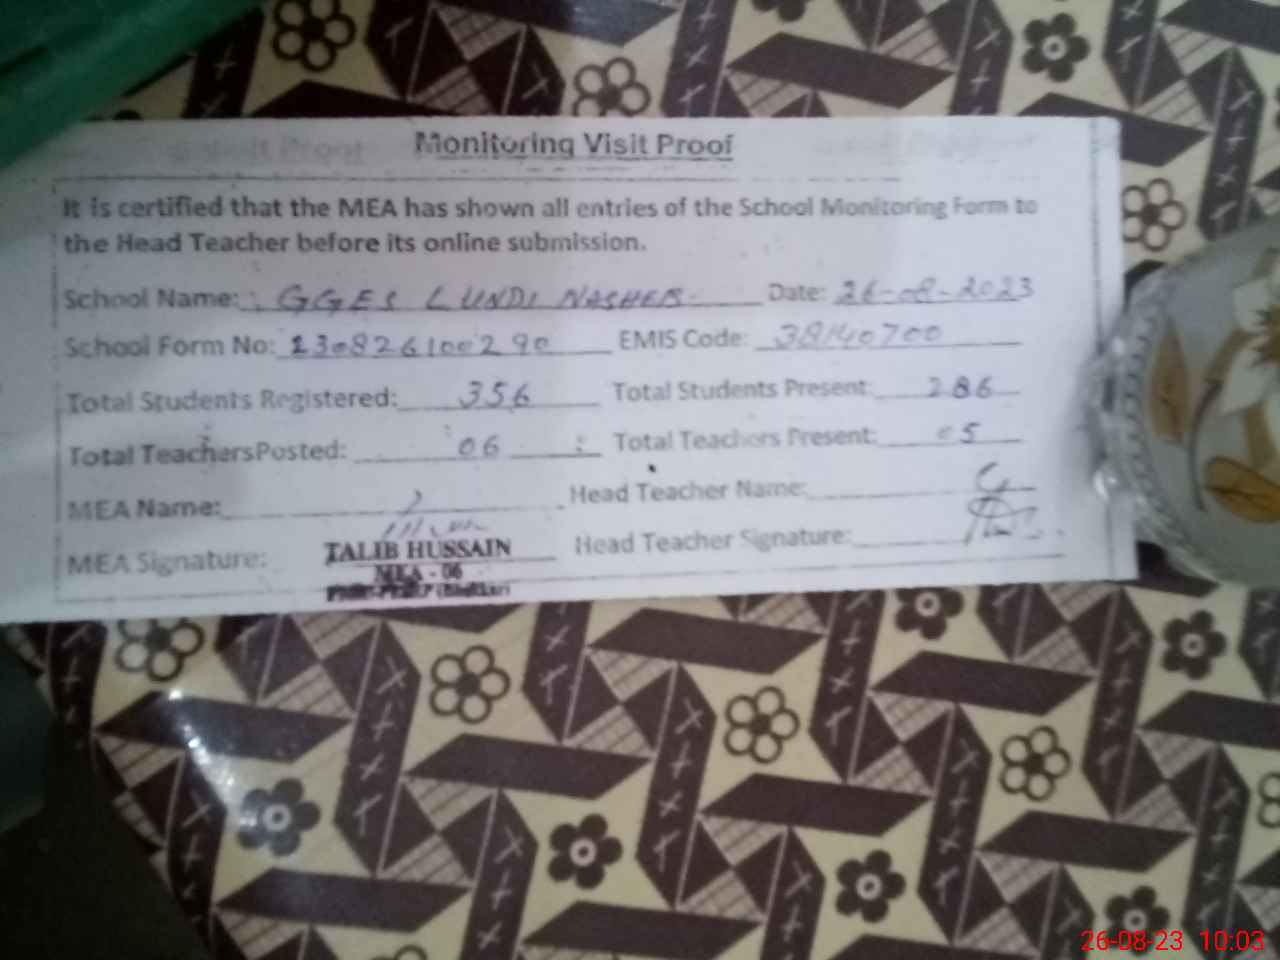 Monitoring Visit Proof
It is certified that the MEA has shown all entries of the School Monitoring Form to
the Head Teacher before its online submission.
School Name: GGES LUNDI NASHER Date: 26-08-2023
School Form No: 230826100290 EMIS Code: 38140700
Total Students Registered: 356 Total Students Present: 286
Total TeachersPosted: 06 Total Teachers Present: 05
MEA Name: Head Teacher Name:
MEA Signature: TALIB HUSSAIN Head Teacher Signature:
MEA - 06
26-08-23 10:03